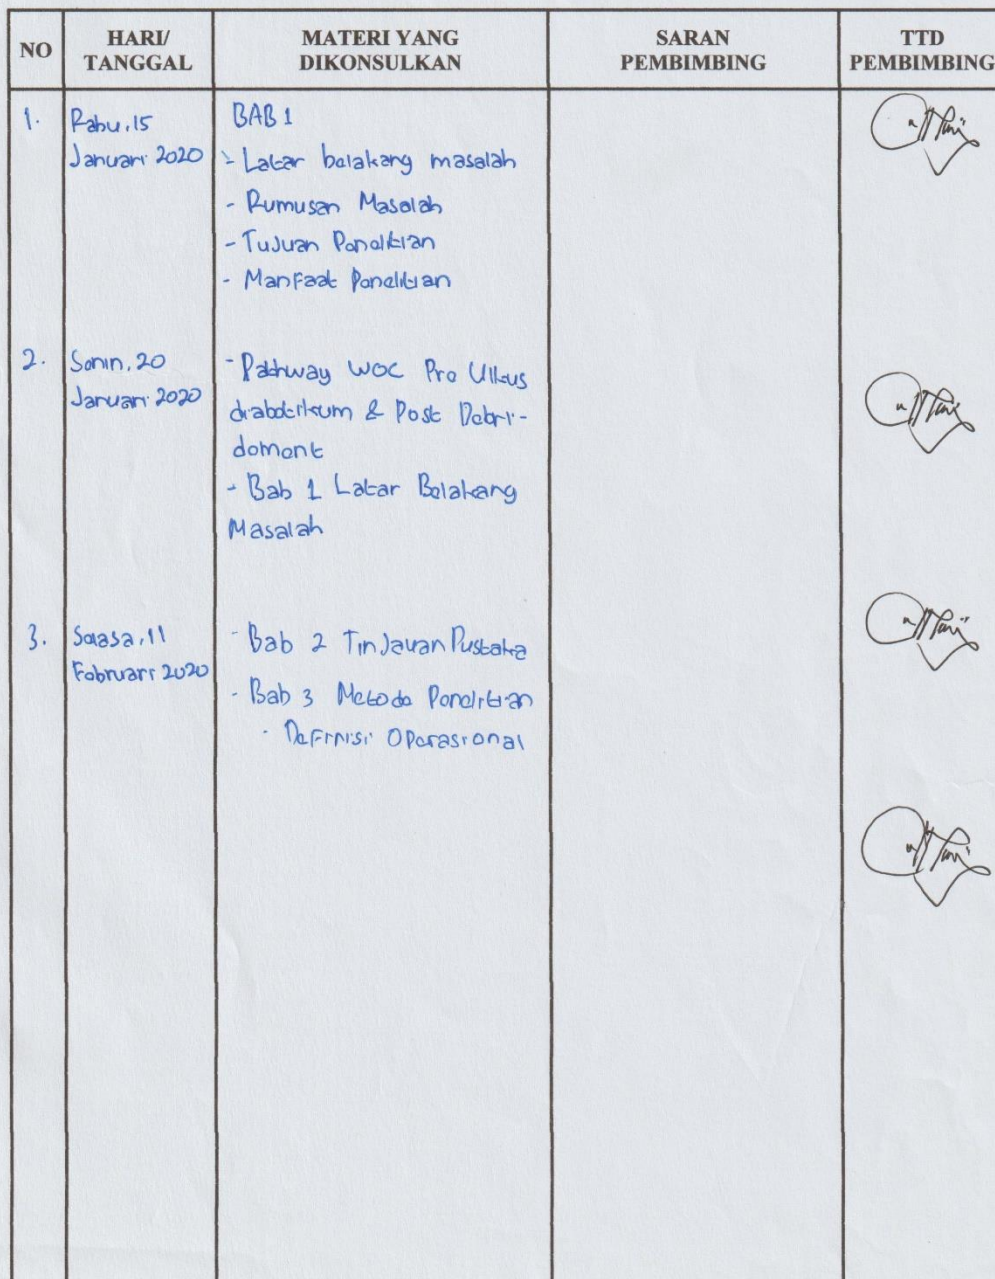 NO
HARI/
TANGGAL
MATERI YANG
DIKONSULKAN
SARAN
PEMBIMBING
TTD
PEMBIMBING
1.
Rabu, 15
Januari 2020
BAB 1
- Latar belakang masalah
- Rumusan Masalah
- Tujuan Penelitian
- Manfaat Penelitian
2.
Senin, 20
Januari 2020
- Pathway WOC Pre Ulkus
diabetikum & Post Debri-
dement
- Bab 1 Latar Belakang
Masalah
3.
Selasa, 11
Februari 2020
- Bab 2 Tinjauan Pustaka
- Bab 3 Metode Penelitian
- Definisi Operasional